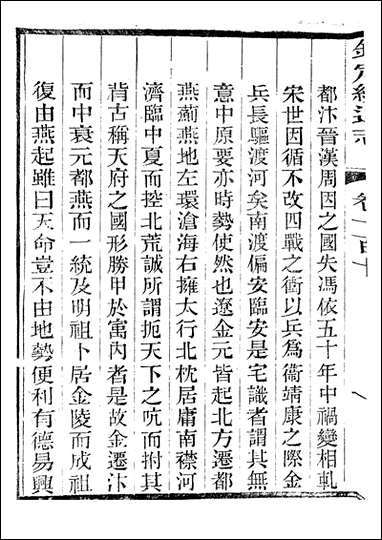 欽定續通志
卷一百十
都汴晉漢周因之國失馮依五十年中禍變相軋
宋世因循不改四戰之衝以兵爲衞靖康之際金
兵長驅渡河矣南渡偏安臨安是宅識者謂其無
意中原要亦時勢使然也遼金元皆起北方遷都
燕薊燕地左環滄海右擁太行北枕居庸南襟河
濟臨中夏而控北荒誠所謂扼天下之吭而拊其
背古稱天府之國形勝甲於寓內者是故金遷汴
而中衰元都燕而一統及明祖卜居金陵而成祖
復由燕起雖曰天命豈不由地勢便利有德易興